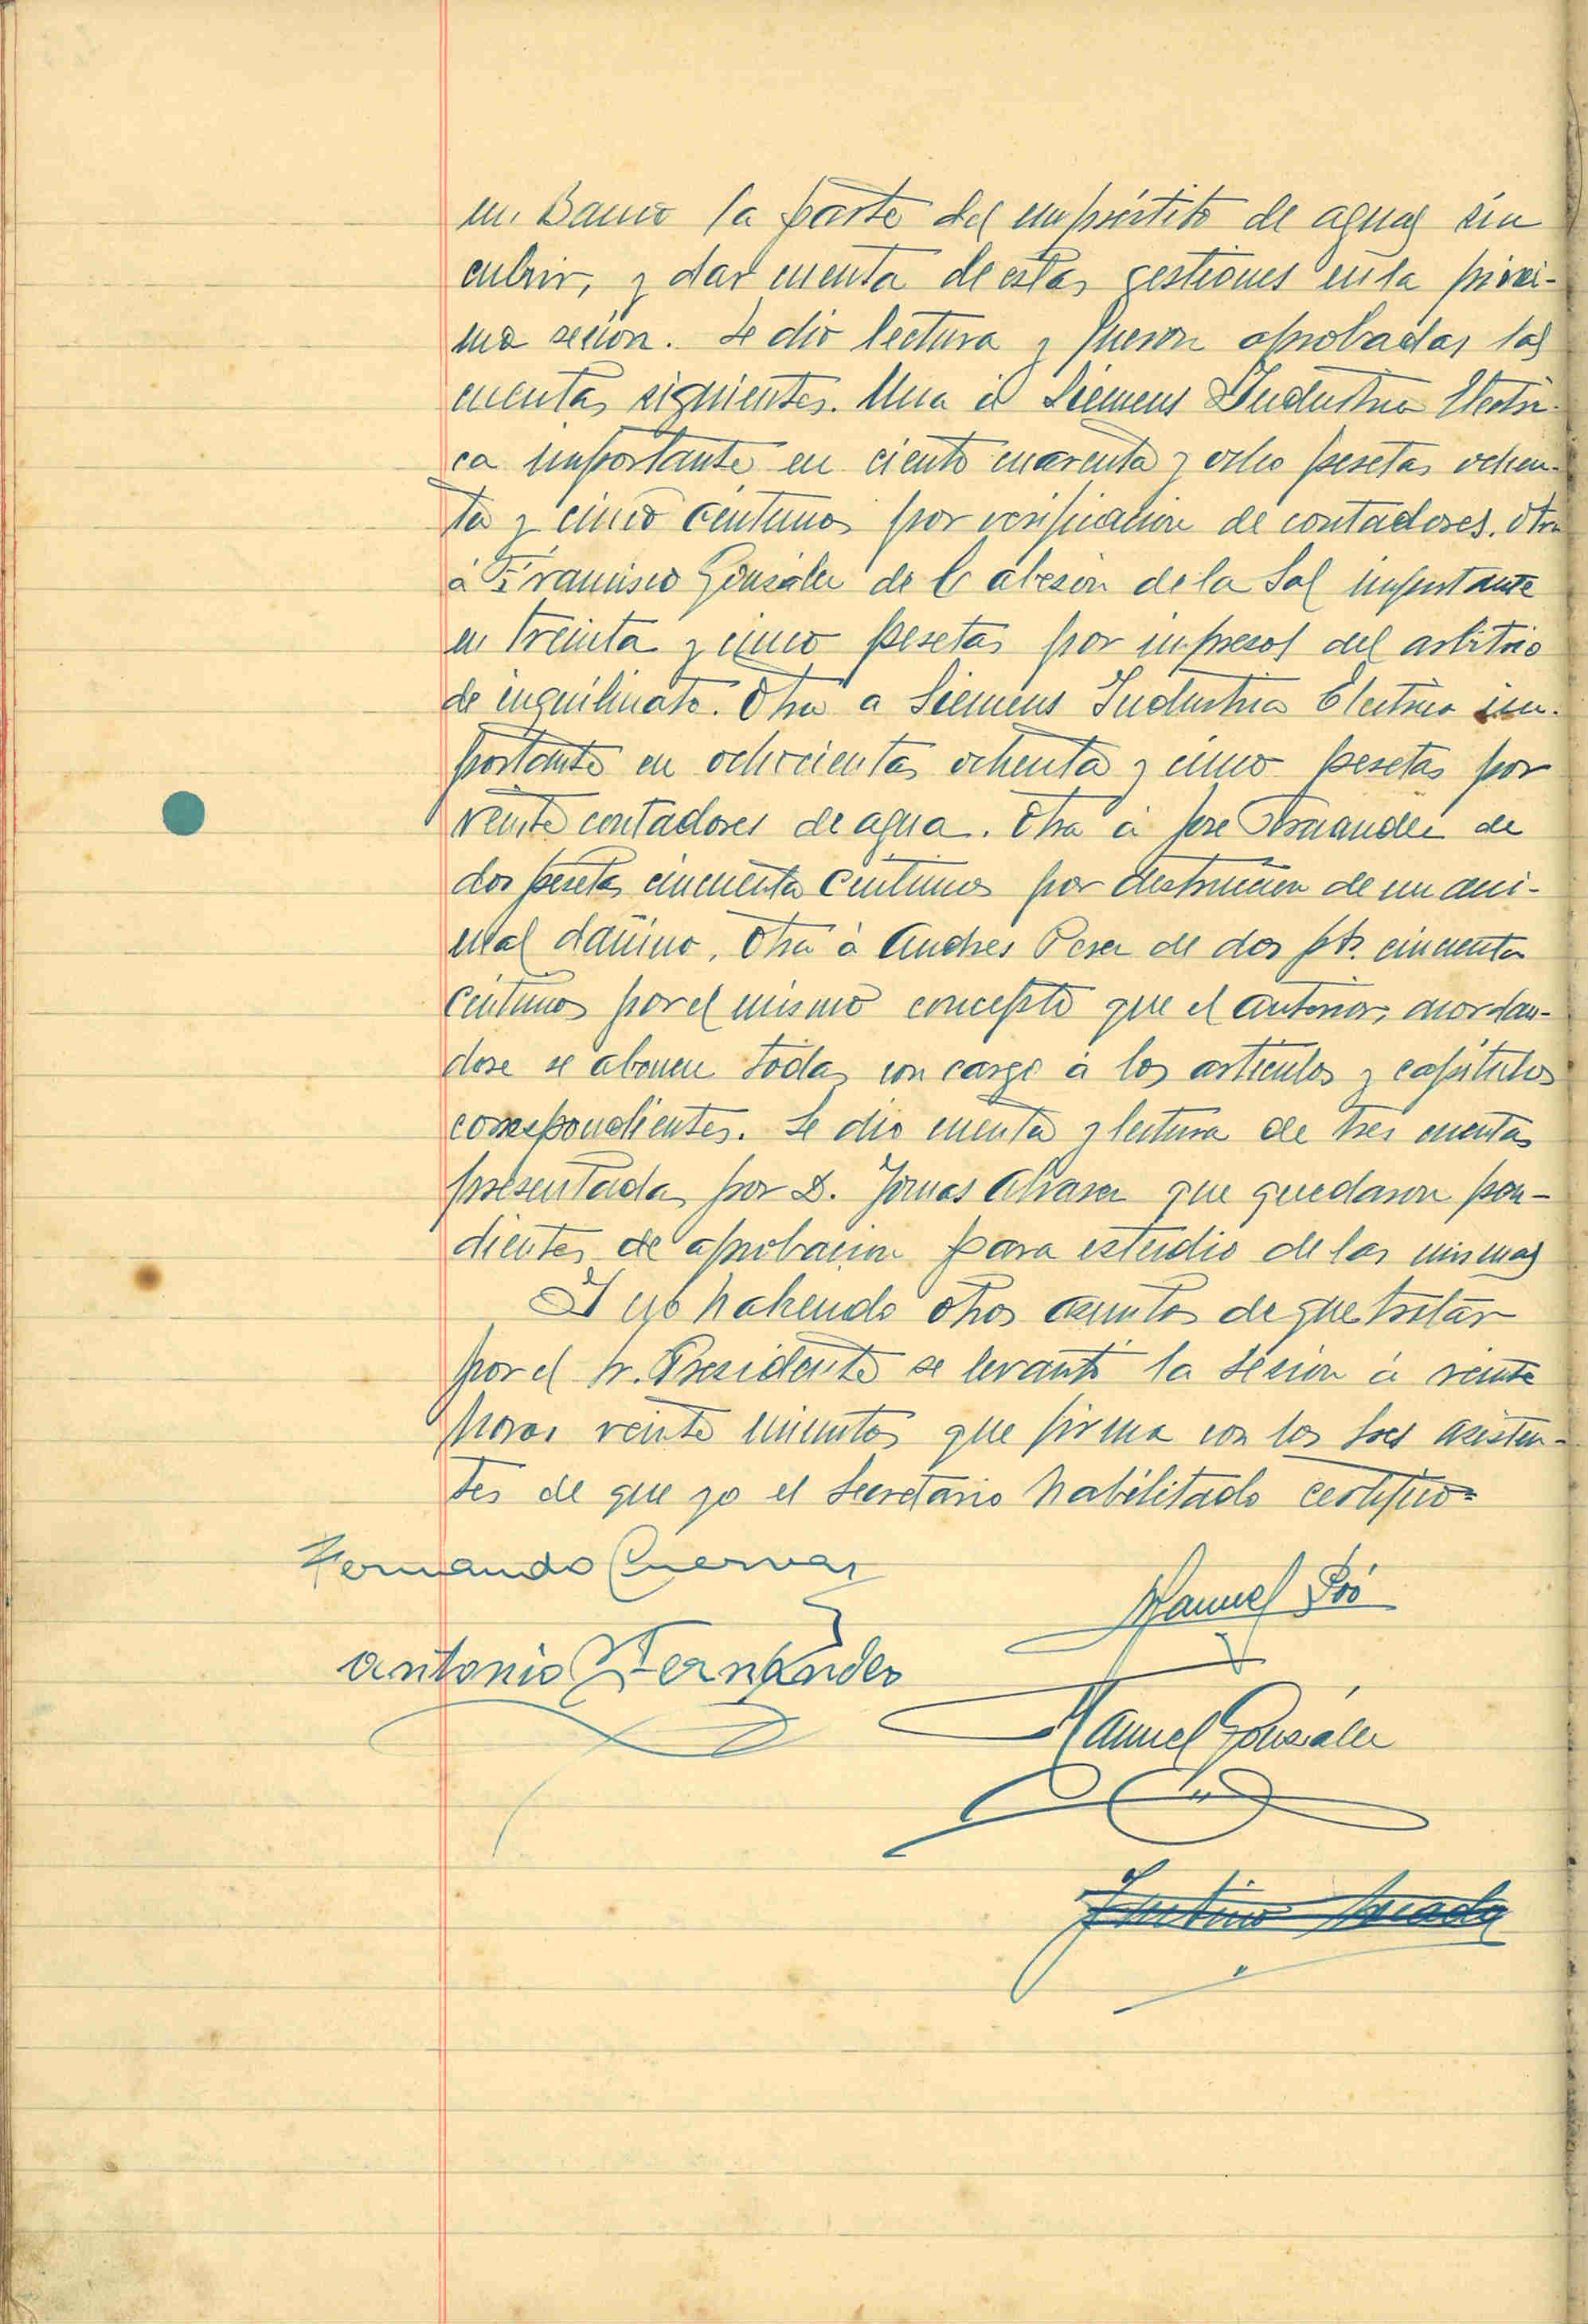 en Banco la parte del empréstito de aguas sin
cubrir, y dar cuenta de estas gestiones en la próxi-
ma sesion. Se dio lectura y fueron aprobadas las
cuentas siguientes. Una á Siemens Industria Electri-
ca importante en ciento cuarenta y ocho pesetas ochen-
ta y cinco centimos por verificacion de contadores. Otra
á Francisco González de Cabezón de la Sal importante
en treinta y cinco pesetas por impresos del arbitrio
de inquilinato. Otra a Siemens Industria Electrica im-
portante en ochocientas ochenta y cinco pesetas por
veinte contadores de agua. Otra á Jose Fernandez de
dos pesetas cincuenta centimos por destruccion de un ani-
mal dañino. Otra á Andres de dos pts. cincuenta
centimos por el mismo concepto que el anterior, acordan-
dose se abonen todas con cargo á los articulos y capitulos
correspondientes. Se dio cuenta y lectura de tres cuentas
presentadas por D. que quedaron pen-
dientes de aprobacion para estudio de las mismas
Y no habiendo otros asuntos de que tratar
por el Sr. Presidente se levantó la sesion á veinte
horas veinte minutos que firma con los Sres asisten-
tes de que yo el Secretario habilitado certifico=
Fernando Cuevas
Manuel Póo
Antonio Fernández
Manuel González